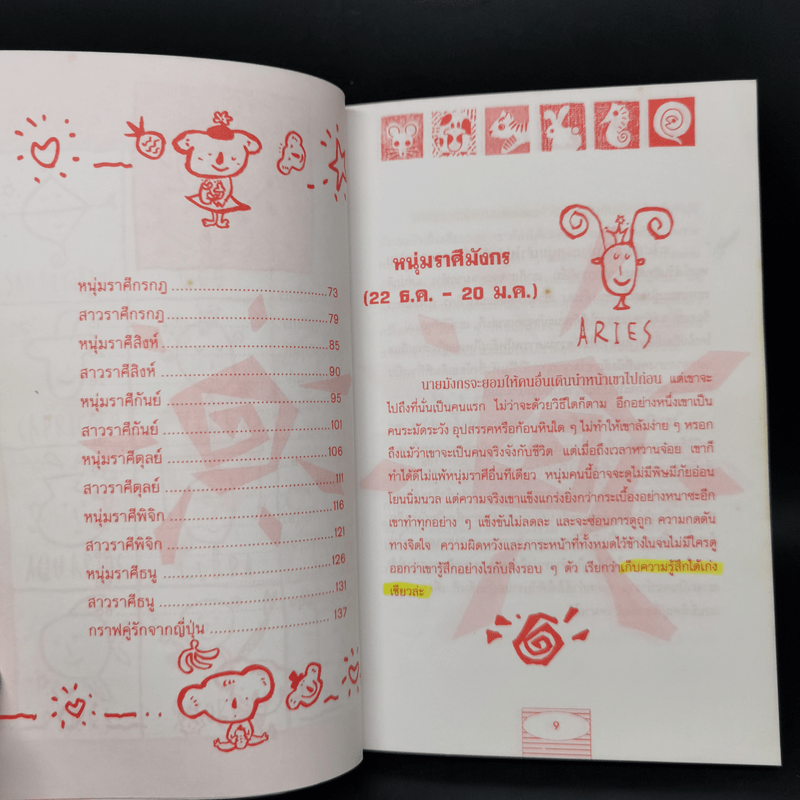 หนุ่มราศีกรกฎ ........................................ 73
สาวราศีกรกฎ ........................................ 79
หนุ่มราศีสิงห์ ........................................ 85
สาวราศีสิงห์ ........................................ 90
หนุ่มราศีกันย์ ........................................ 95
สาวราศีกันย์ ........................................ 101
หนุ่มราศีตุลย์ ........................................ 106
สาวราศีตุลย์ ........................................ 111
หนุ่มราศีพิจิก ........................................ 116
สาวราศีพิจิก ........................................ 121
หนุ่มราศีธนู ........................................ 126
สาวราศีธนู ........................................ 131
กราฟคู่รักจากญี่ปุ่น ........................................ 137
หนุ่มราศีมังกร
(22 ธ.ค. - 20 ม.ค.)
ARIES
นายมังกรจะยอมให้คนอื่นเดินนำหน้าเขาไปก่อน แต่เขาจะ
ไปถึงที่นั่นเป็นคนแรก ไม่ว่าจะด้วยวิธีใดก็ตาม อีกอย่างหนึ่งเขาเป็น
คนระมัดระวัง อุปสรรคหรือก้อนหินใด ๆ ไม่ทำให้เขาล้มง่าย ๆ หรอก
ถึงแม้ว่าเขาจะเป็นคนจริงจังกับชีวิต แต่เมื่อถึงเวลาหวานจ๋อย เขาก็
ทำได้ดีไม่แพ้หนุ่มราศีอื่นทีเดียว หนุ่มคนนี้อาจจะดูไม่มีพิษมีภัยอ่อน
โยนนิ่มนวล แต่ความจริงเขาแข็งแกร่งยิ่งกว่ากระเบื้องอย่างหนาซะอีก
เขาทำทุกอย่าง ๆ แข็งขันไม่ลดละ และจะซ่อนการดูถูก ความกดดัน
ทางจิตใจ ความผิดหวังและภาระหน้าที่ทั้งหมดไว้ข้างในจนไม่มีใครดู
ออกว่าเขารู้สึกอย่างไรกับสิ่งรอบ ๆ ตัว เรียกว่าเก็บความรู้สึกได้เก่ง
เชียวล่ะ
9